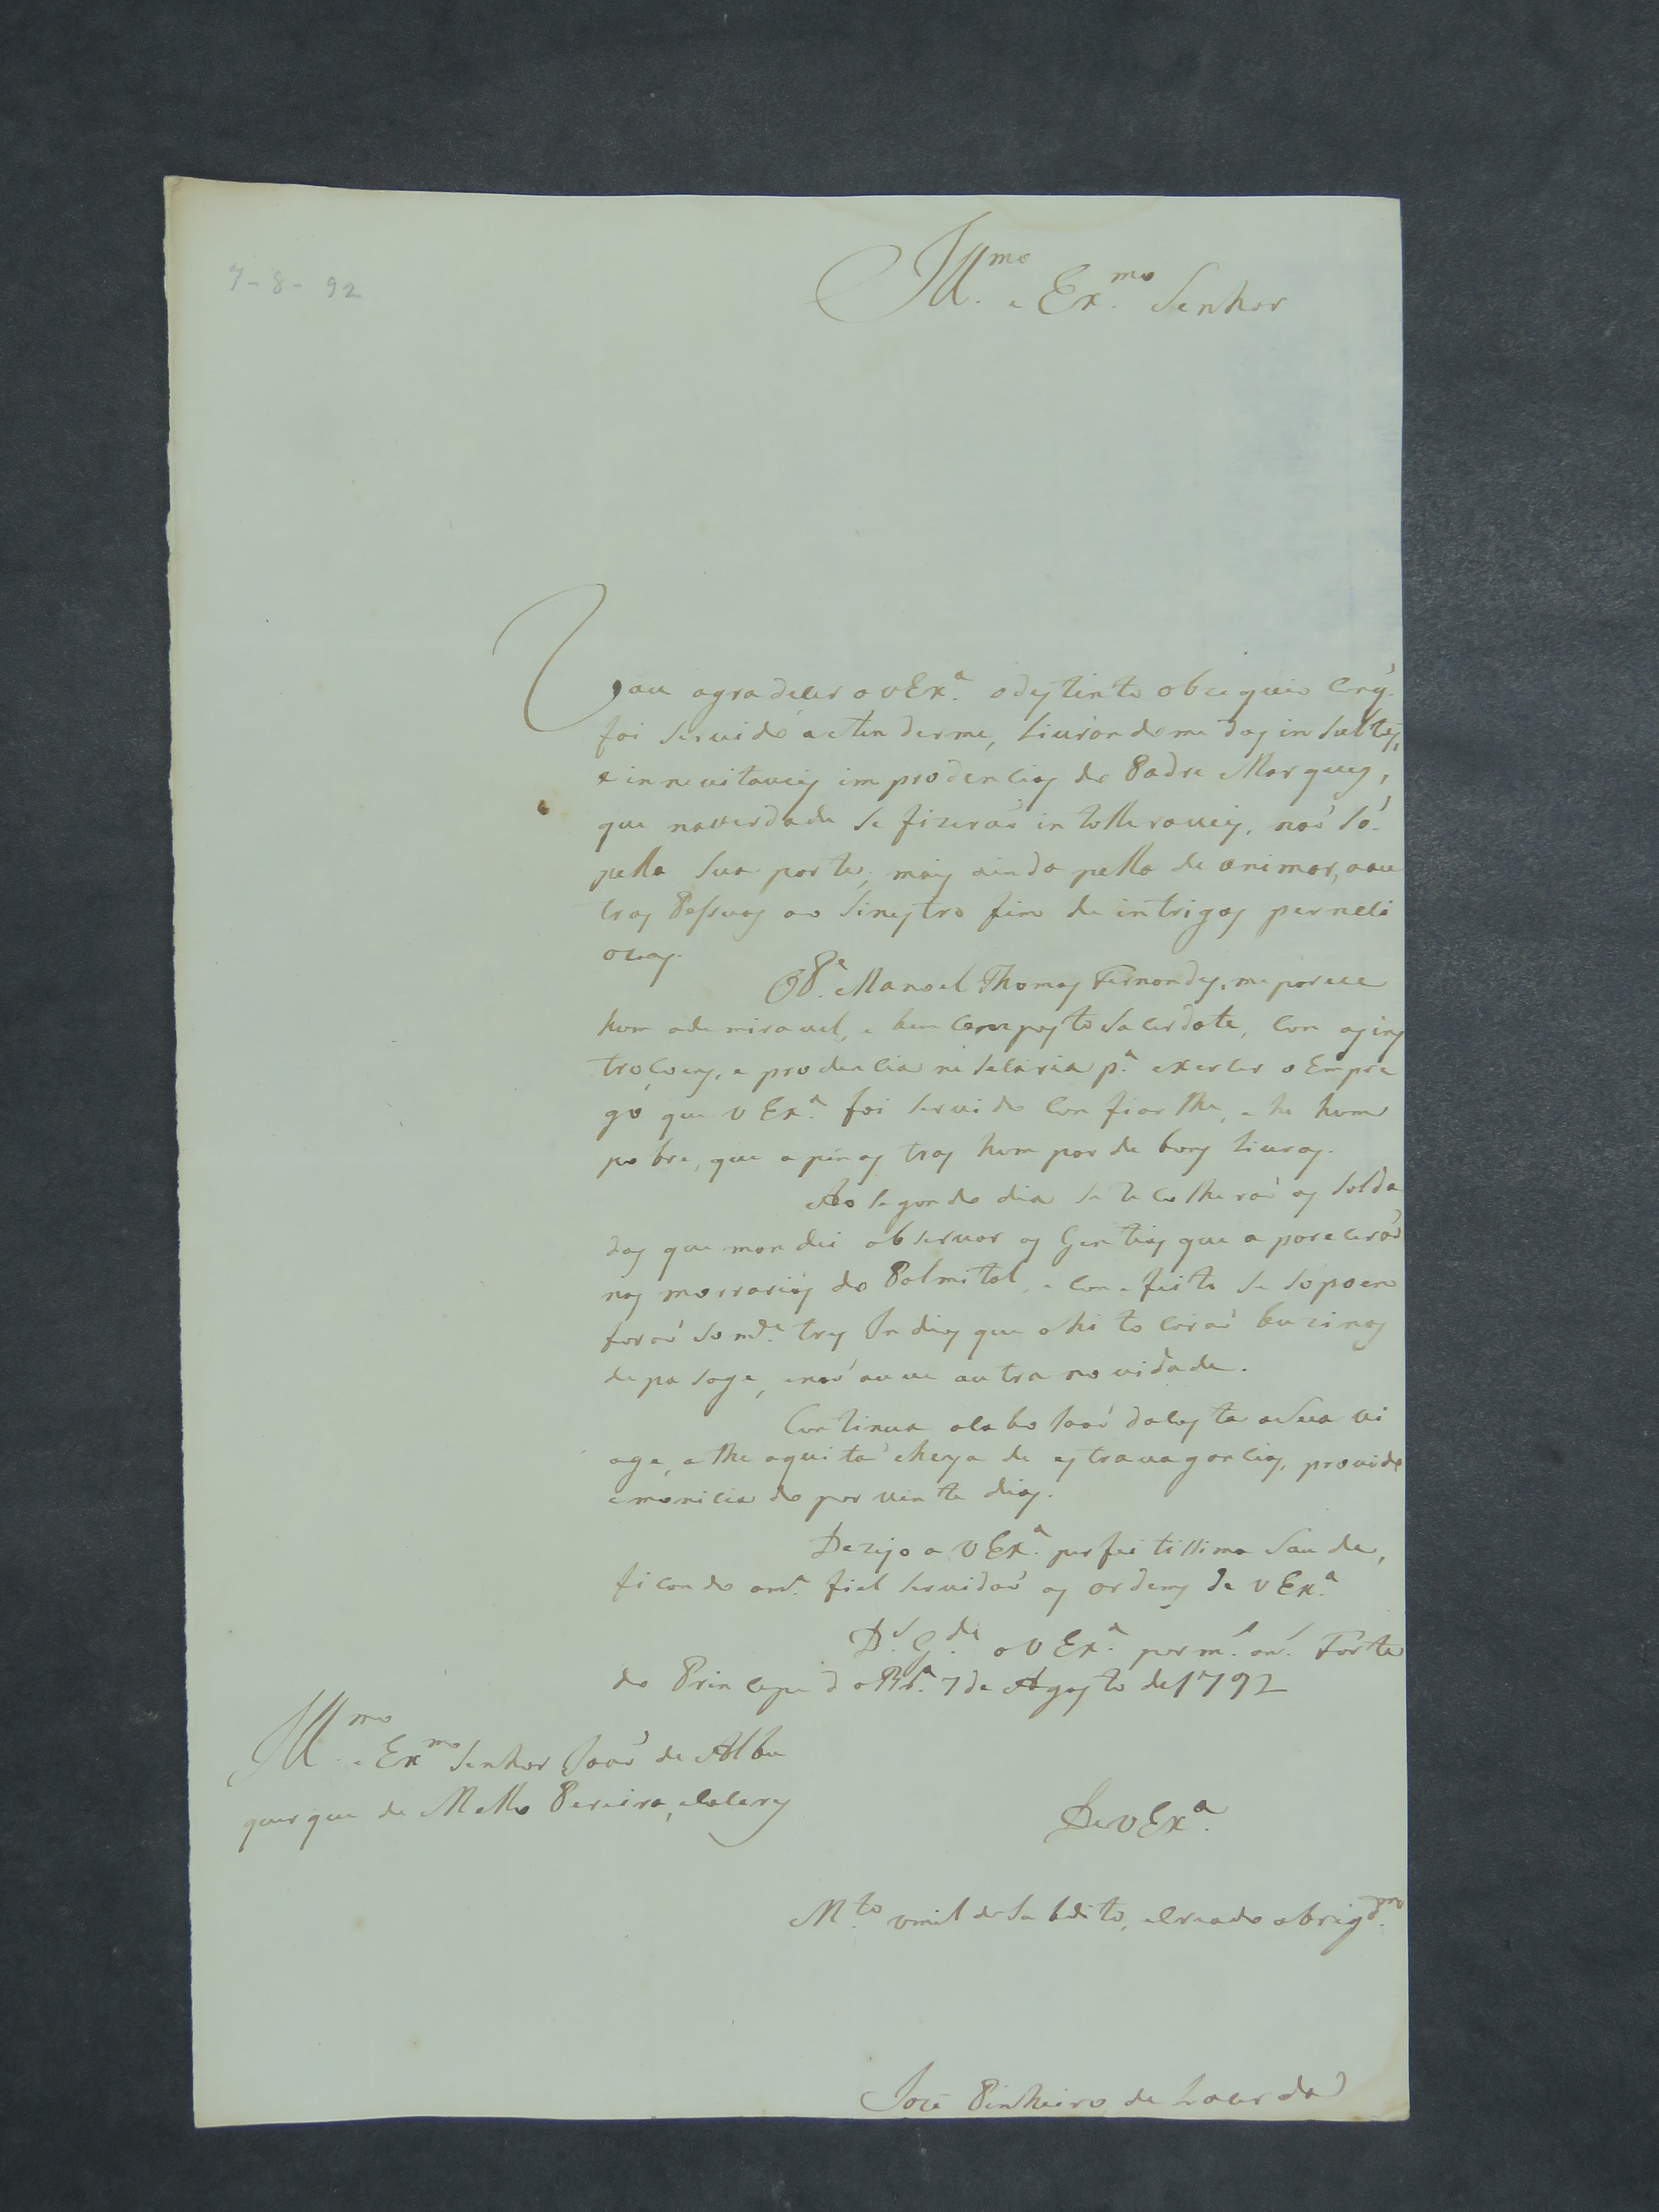 7-8-92
Ill.mo e Ex.mo Senhor
Vou agradecer a V Ex.a o destinto obzequio com q'
foi servido attenderme, Livrandome dos insultos,
e innevitaveis improdencias do Padre Marques,
que naverdade se fizeraõ intolleraveis, naõ só
pella sua parte, mais ainda pella de animar, aou
tras Pessoas ao Sinestro fim de intrigas perneci
ozas.
O P.e Manoel Thomas Fernandes, me parece
hum ademiravel, e bem composto Sacerdote, com as ins
troçoens, e prodencia neseçaria p.a exercer o Empre
go que V Ex.a foi servido Confiarlhe, e he hum
pobre, que apenas tras hum par de bons Livros.
Ao segondo dia se recolheraõ os Solda
dos que mandei observar os Gentios que apareceraõ
nas morrarias do Palmital, e com efeito se sopoem
foraõ som.te tres Indios que ahi tocaraõ buzinas
de pasage, e naõ ouve outra novidade.
Continua o Cabo Joaõ da Costa a sua vi
age, athe aqui tá cheya de estravagancias, provido
e moniciado por vinte dias.
Dezejo a V Ex.a perfeitissima Saude,
ficando am.a fiel servidaõ as ordens de V Ex.a
D.s G.de a V Ex.a por m.s an.s Forte
do Princepe da Br.a 7 de Agosto de 1792
Ill.mo e Ex.mo Senhor Joaõ de Albu
querque de Mello Pereira, e Caceres
De V Ex.a
M.to umilde Subdito, e Creado obrig.dmo
Joze Pinheiro de Lacerda